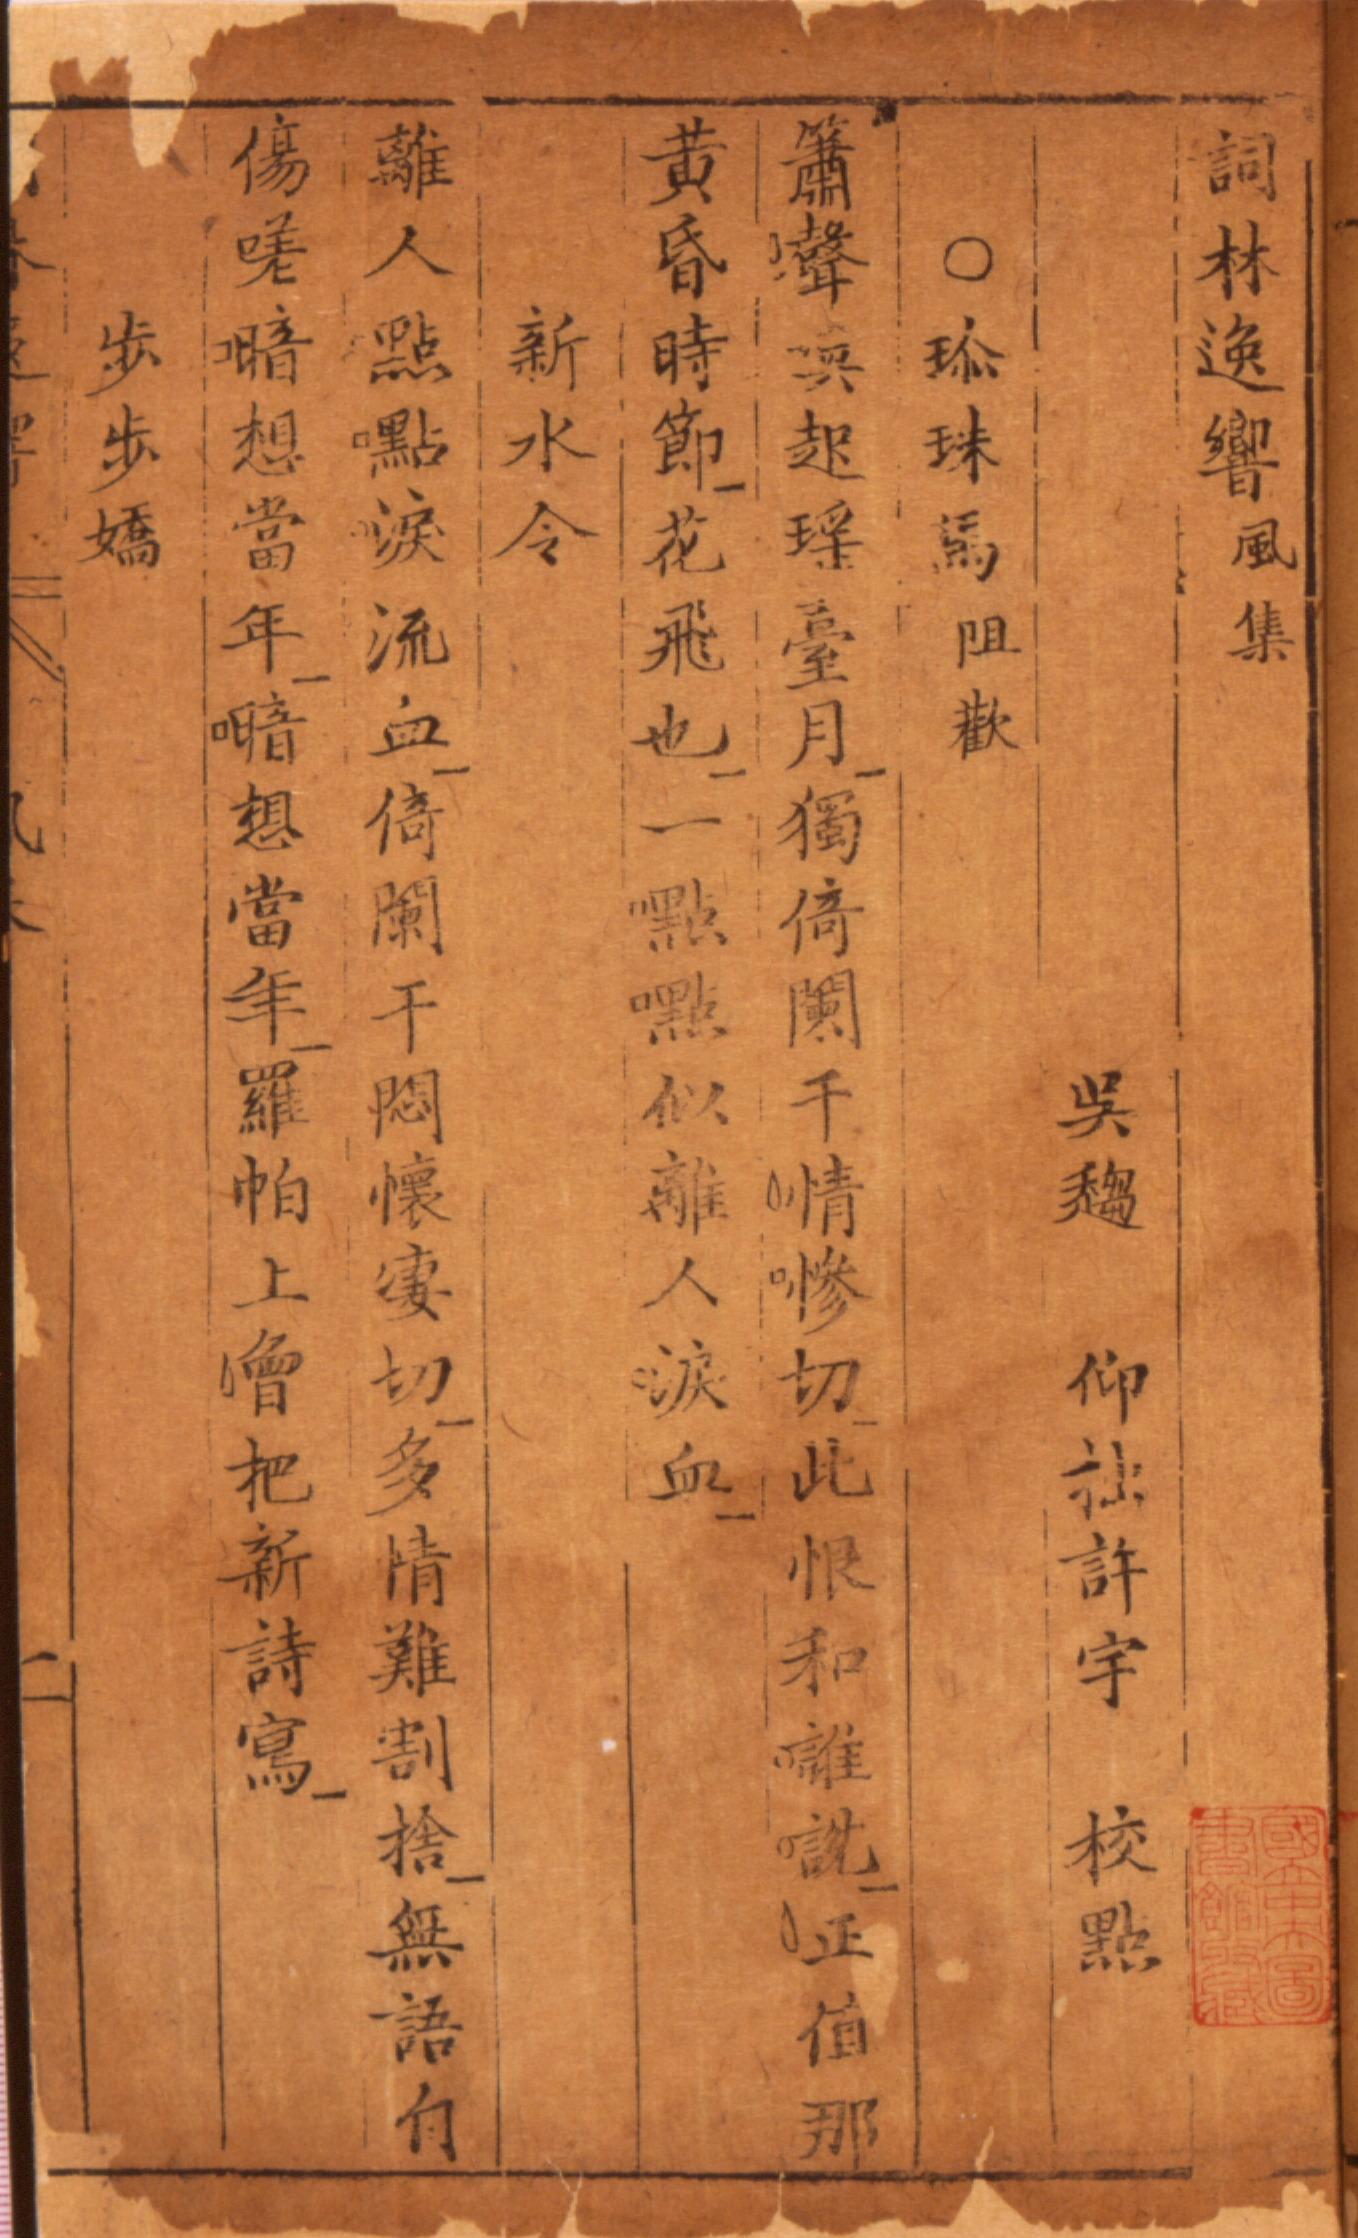 詞林逸響風集
吳趨　仰拙許宇　校點
○珎珠馬阻歡
簫聲喚起瑤臺月獨倚闌干情慘切此恨和誰說正值那
黃昏時節花飛也一點點似離人淚血
新水令
離人點點淚流血倚闌干悶懷凄切多情難割捨無語自
傷嗟暗想當年暗想當年羅帕上曾把新詩寫
步步嬌
二
國立中央圖書館收藏